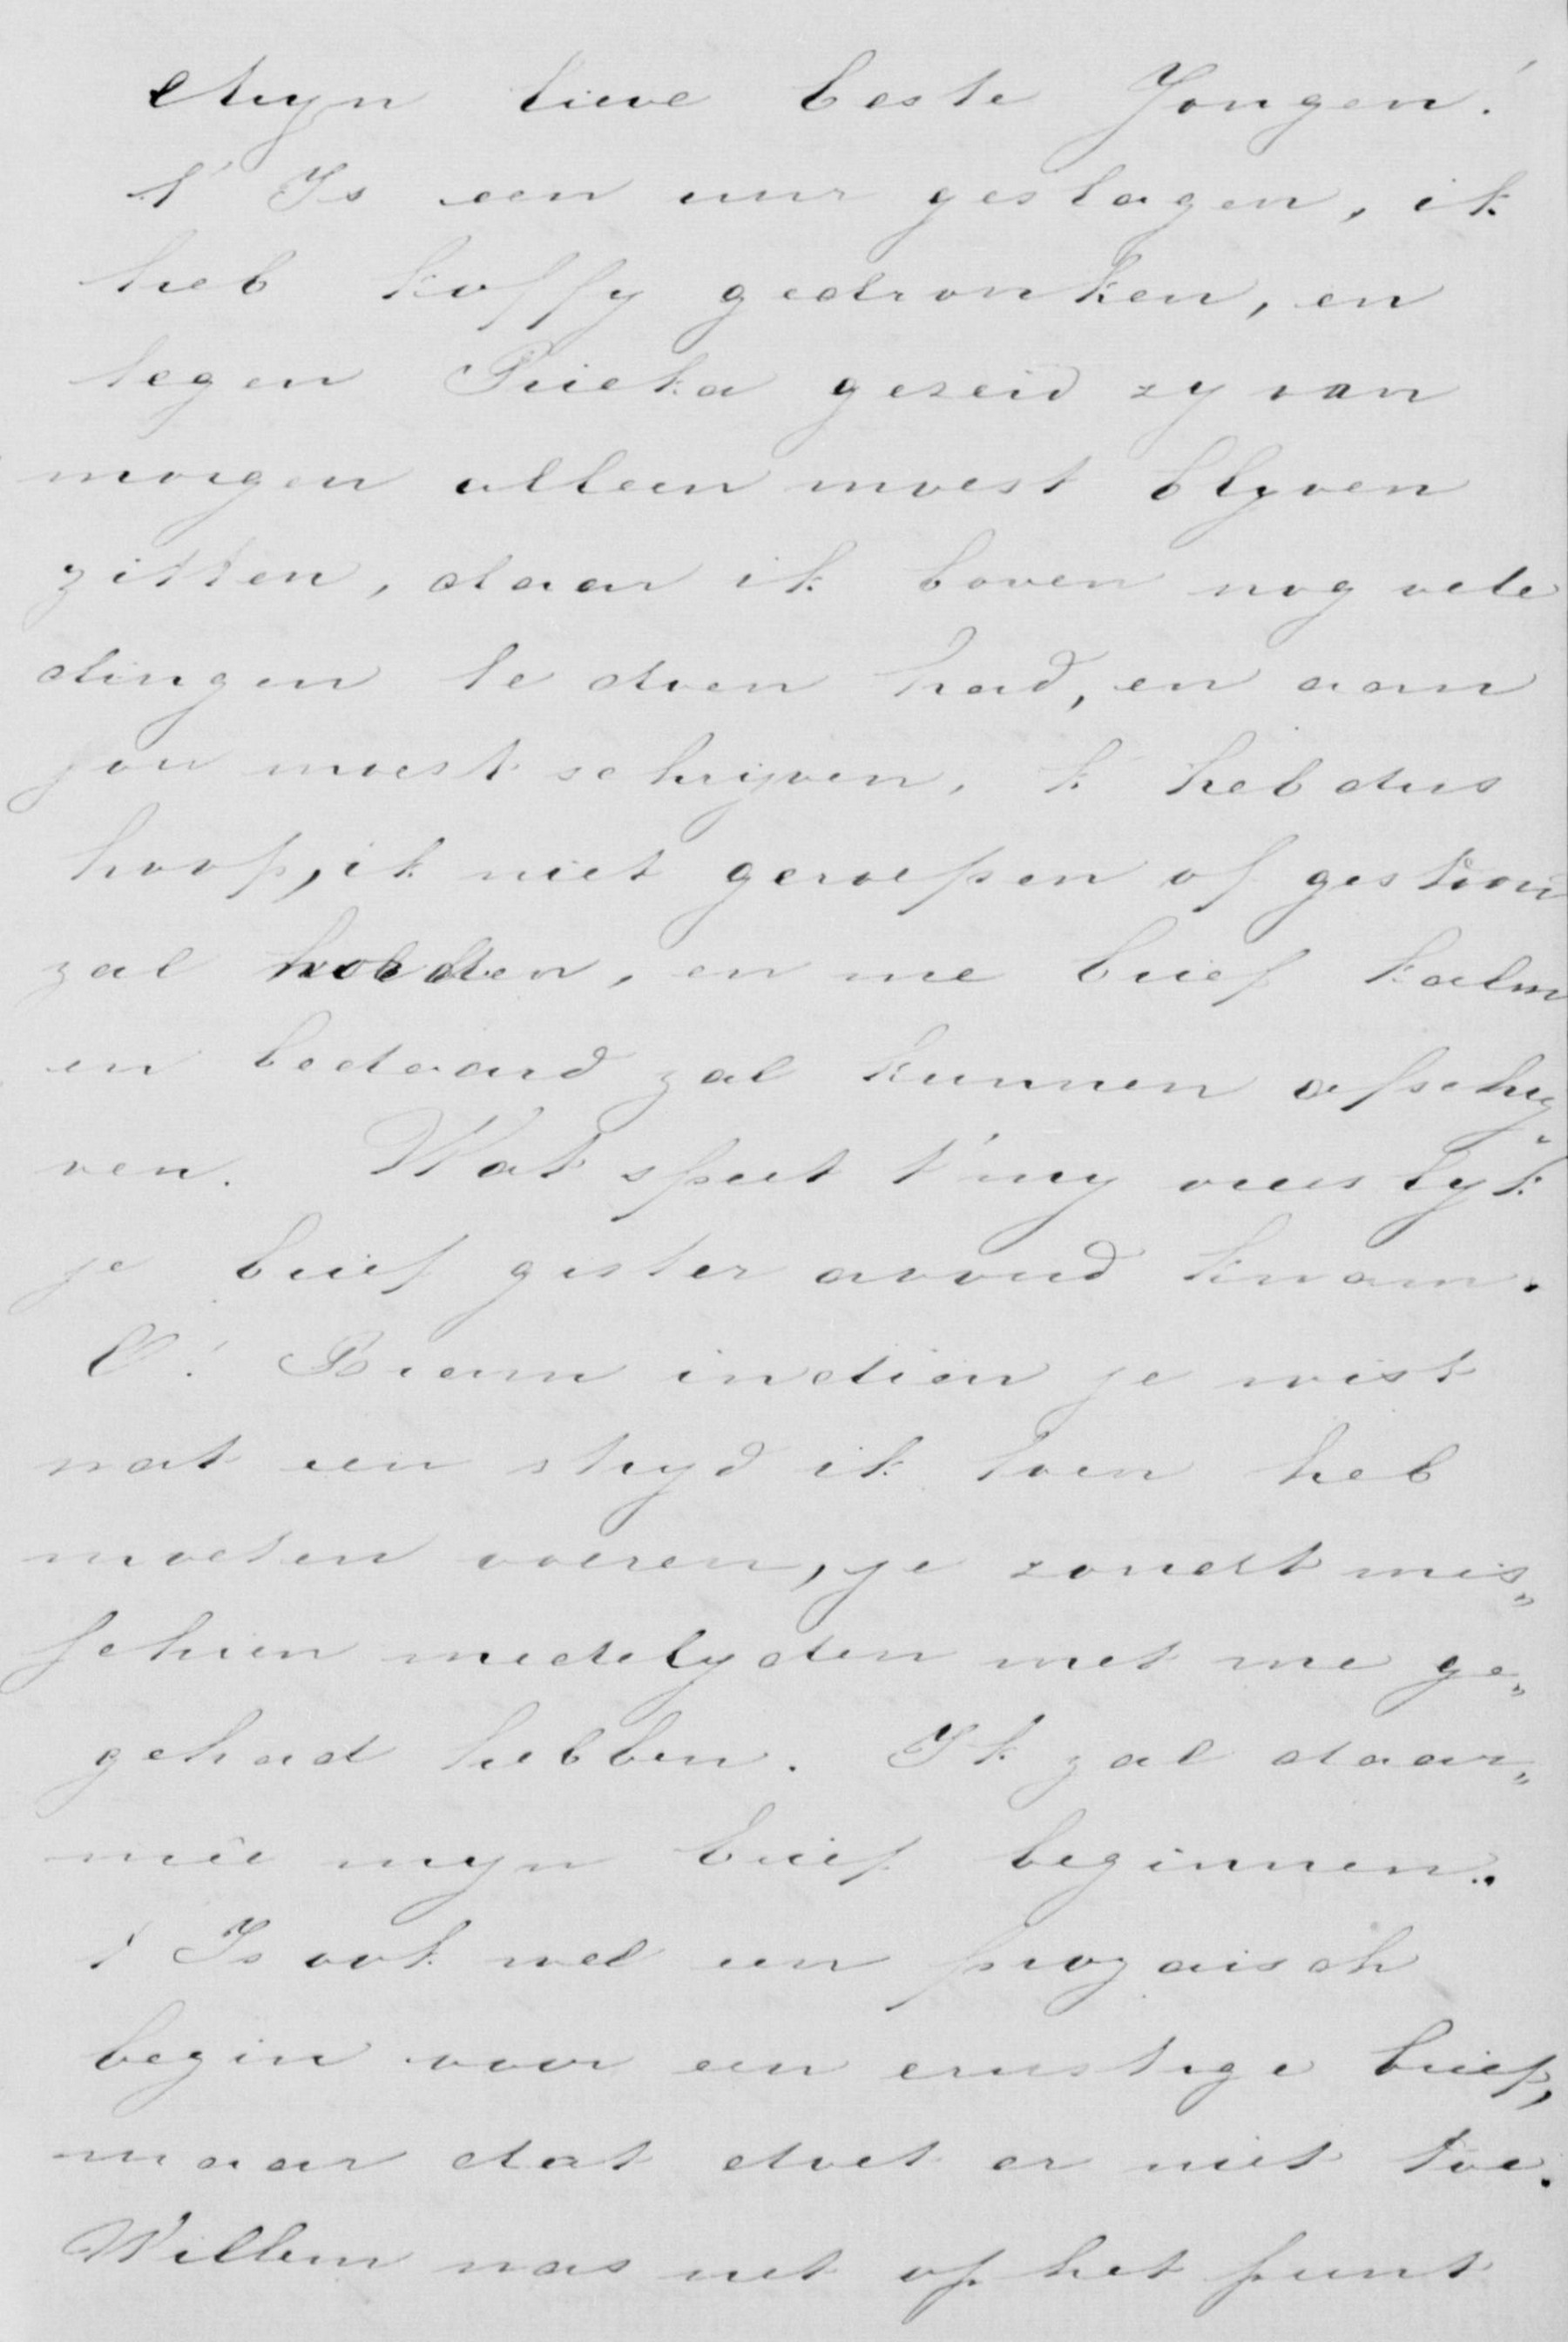 Myn lieve beste Jongen!
t' Is een uur geslagen, ik
heb koffy gedronken, en
tegen Rieka gezeid zy van
morgen alleen moest blyven
zitten, daar ik boven nog vele
dingen te doen had, en aan
jou moest schrijven, k heb dus
hoop, ik niet geroepen of gestoord
zal worden, en me brief kalm
en bedaard zal kunnen afschry
ven. Wat speet t' my vreeslyk
je brief gister avond kwam.
O! Bram indien je wist
wat een stryd ik toen heb
moeten voeren, je zoudt mis„
schien medelyden met me ge„
gehad hebben. Ik zal daar„
meê myn brief beginnen.
t Is ook wel een prozaisch
begin voor een ernstige brief,
maar dat doet er niet toe.
Willem was net op het punt